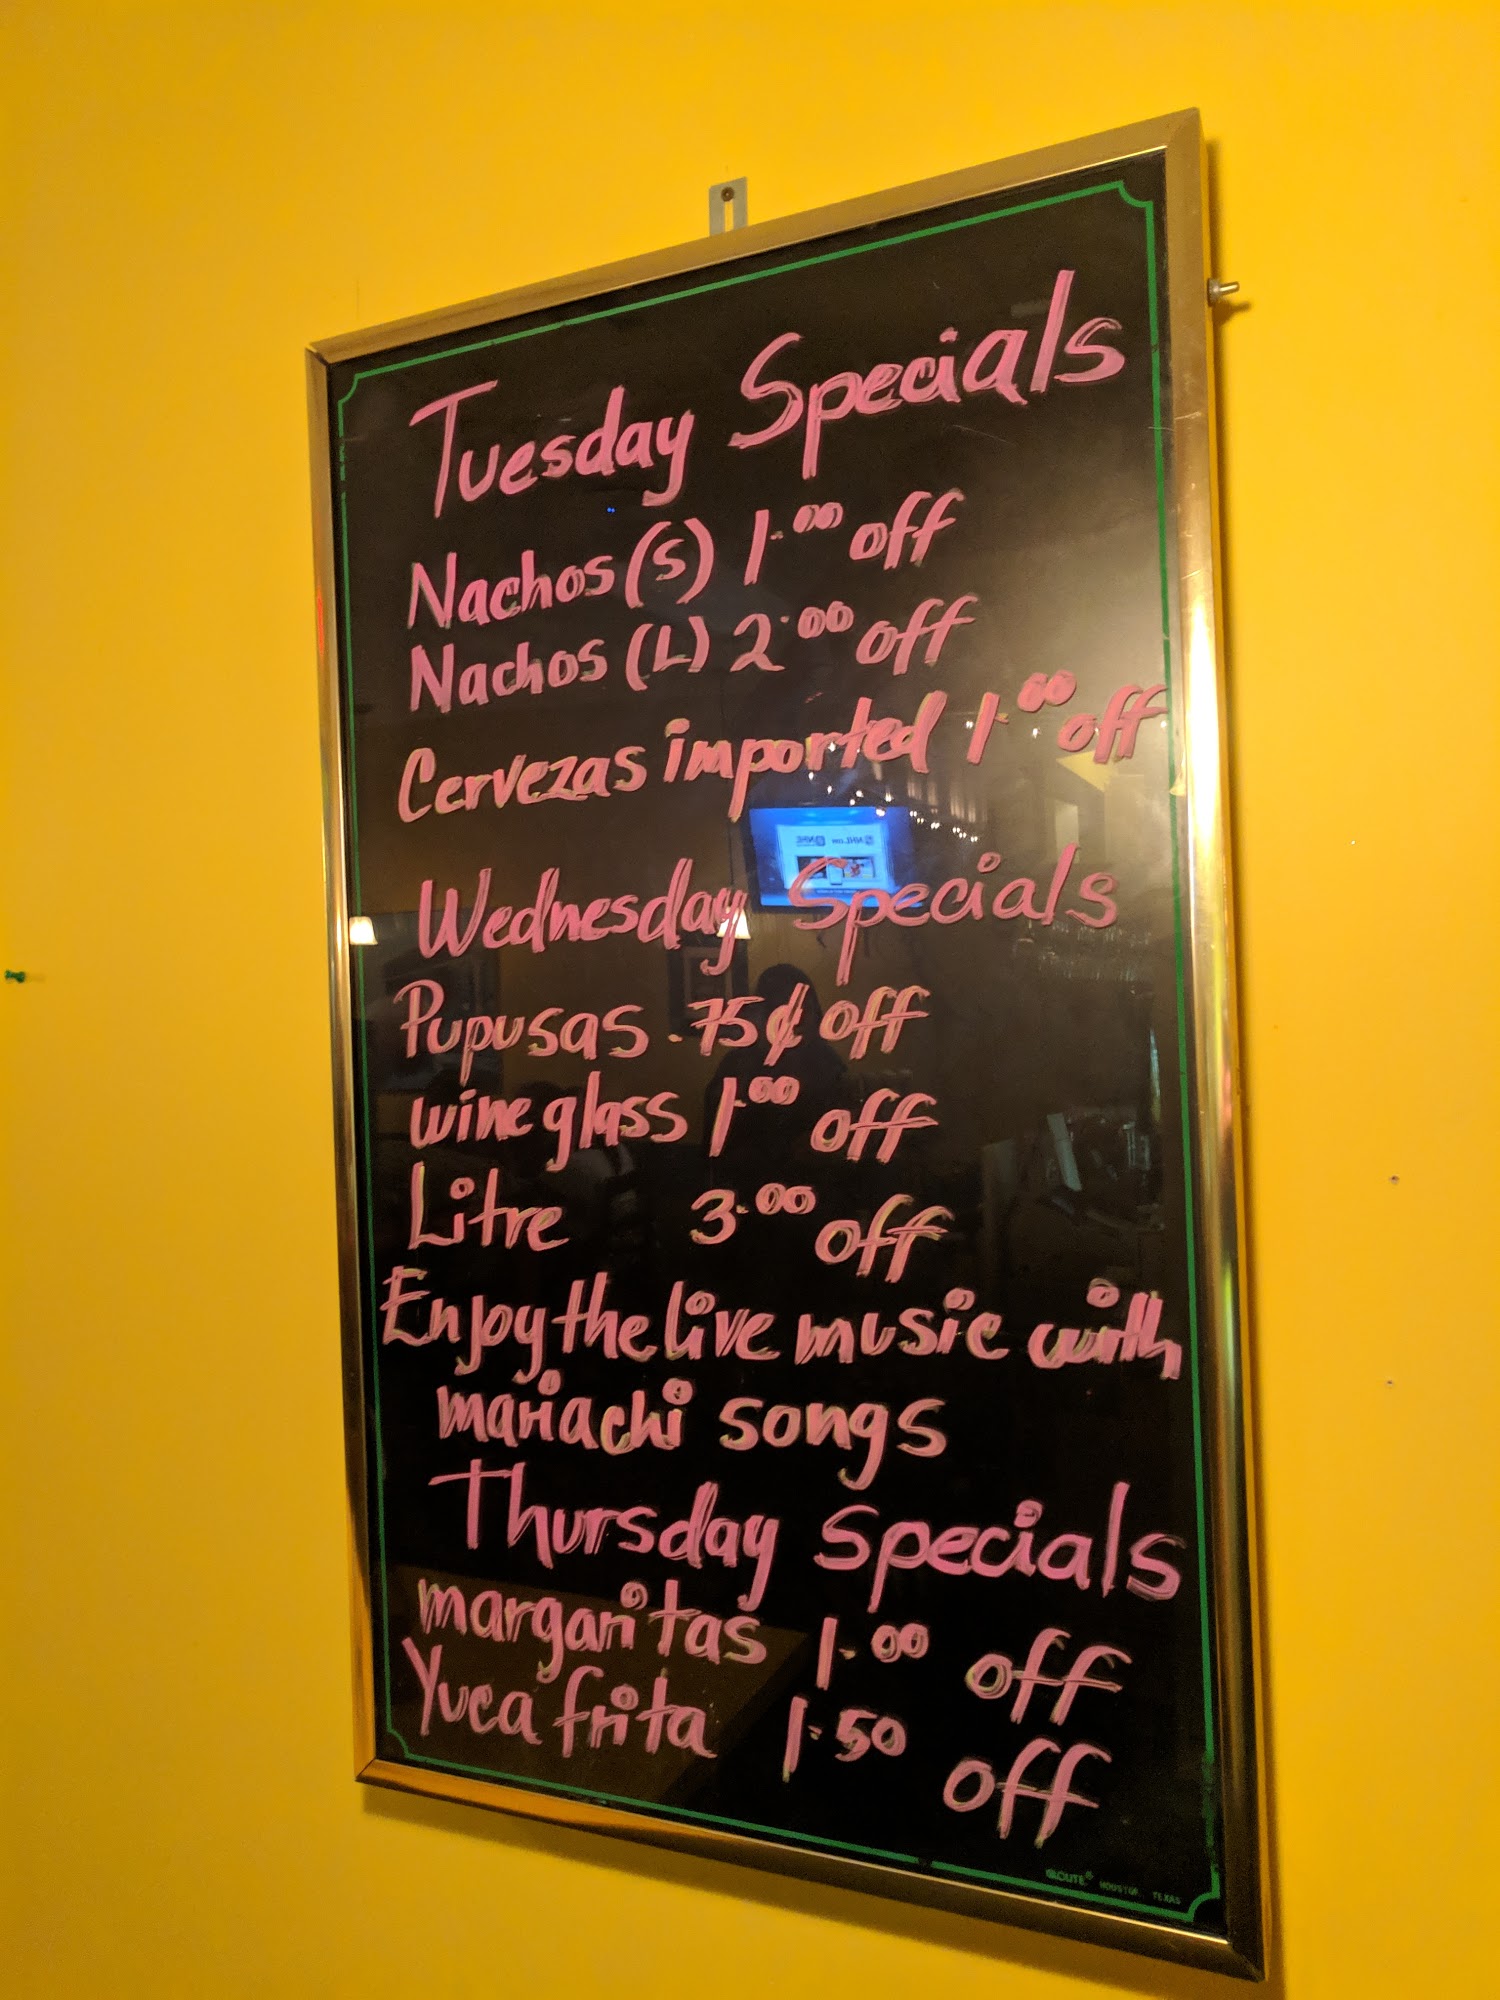 Tuesday Specials
Nachos (S) 1.00 off
Nachos (L) 2.00 off
Cervezas imported 1.00 off
Wednesday Specials
Pupusas .75¢ off
wine glass 1.00 off
Litre 3.00 off
Enjoy the live music with
mariachi songs
Thursday Specials
margaritas 1.00 off
Yuca frita 1.50 off
HOUSTON, TEXAS